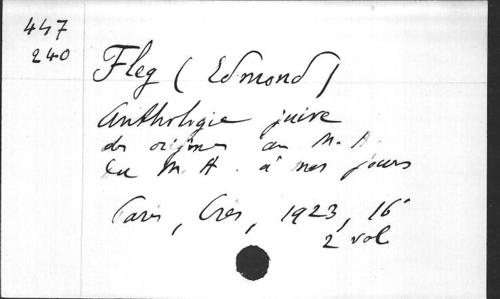 447
240
Fleg (Edmond)
Anthologie juive
des origines au M. A.
du M. A. à nos jours
Paris, Crès, 1923, 16°
2 vol